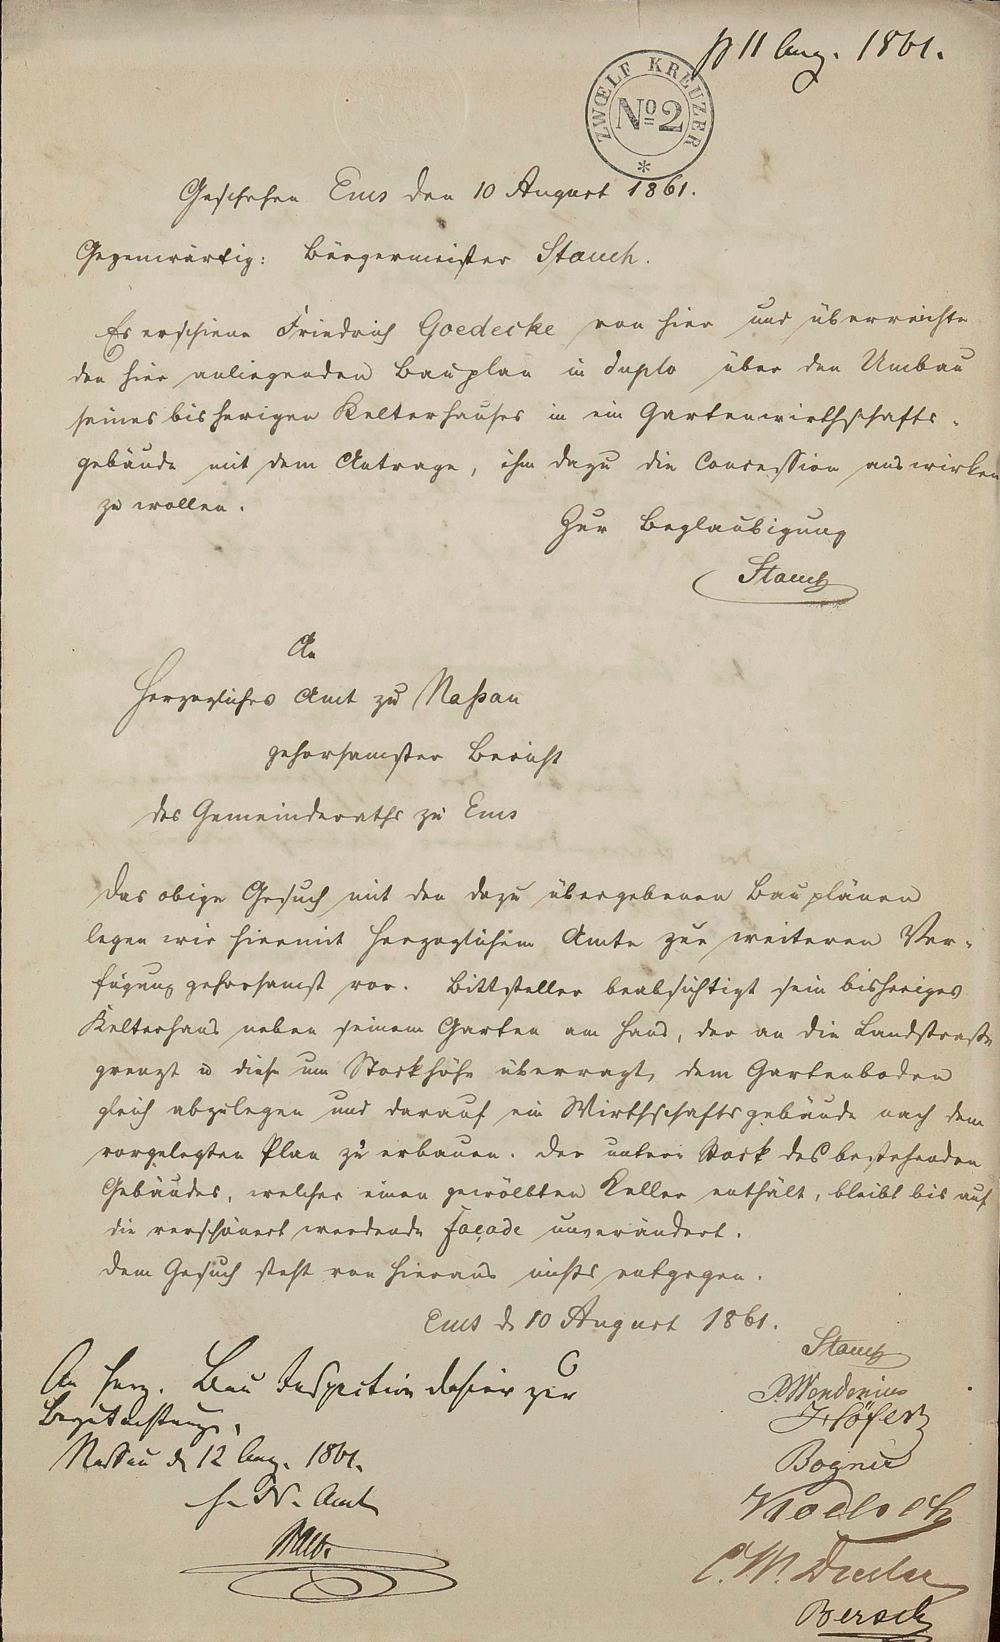 11 Aug. 1861.
ZWŒLF KREUZER
No 2
*
Geschehen Ems den 10 August 1861.
Gegenwärtig: Bürgermeister Stauch.
Es erschiene Friedrich Goedecke von hier und überreichte
den hier anliegenden Bauplan in duplo über den Umbau
seines bisherigen Kelterhauses in ein Gartenwirthschafts-
gebäude mit dem Antrage, ihm dazu die Concession auswirken
zu wollen.
Zur Beglaubigung
Stauch
An
Herzogliches Amt zu Naßau
gehorsamster Bericht
des Gemeinderaths zu Ems
Das obige Gesuch mit den dazu übergebenen Bauplänen
legen wir hiermit Herzoglichem Amte zur weiteren Ver-
fügung gehorsamst vor. Bittsteller beabsichtigt sein bisheriges
Kelterhaus neben seinem Garten am Haus, der an die Landstraße
grenzt u diese um Stockhöhe überragt, dem Gartenboden
gleich abzulegen und darauf ein Wirthschaftsgebäude nach dem
vorgelegten Plan zu erbauen. Der untere Stock des bestehenden
Gebäudes, welcher einen gewölbten Keller enthält, bleibt bis auf
die verschönert werdende façade unverändert.
Dem Gesuch steht von hieraus nichts entgegen.
Ems d 10 August 1861.
Stauch
An Herz. Bau Inspection dahier zur
Begutachtung.
Nassau d 12 Aug. 1861.
H. N. Amt
Bersch